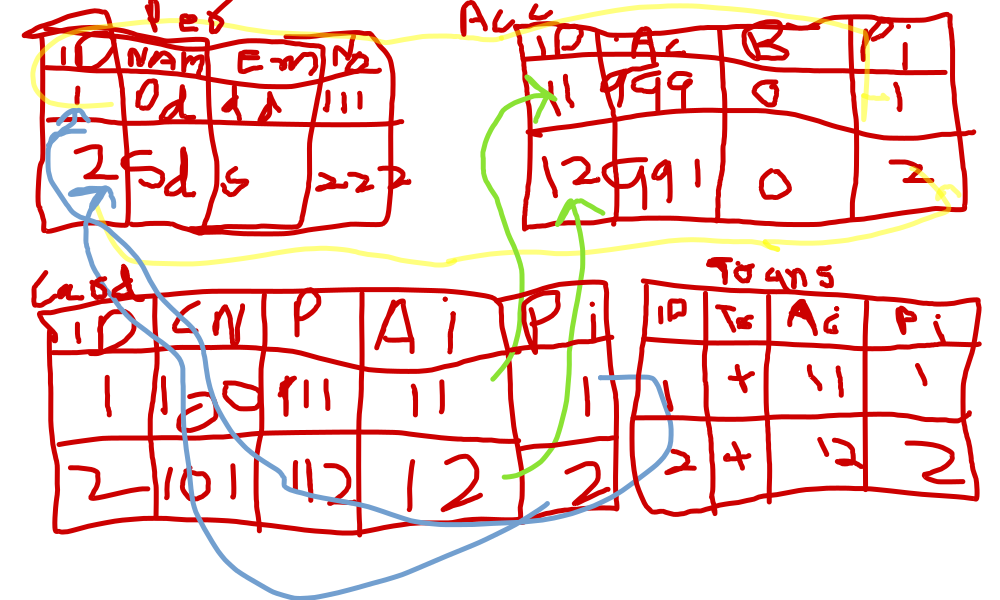 Per
ID NAM Em No
1 Od dd 111
2 Sd s 222
Acc
ID Ac B Pi
11 999 0 1
12 991 0 2
Card
ID CN P Ai
Pi
1 100 111 11 1
2 101 112 12 2
Trans
ID Ts Ai Pi
1 + 11 1
2 + 12 2